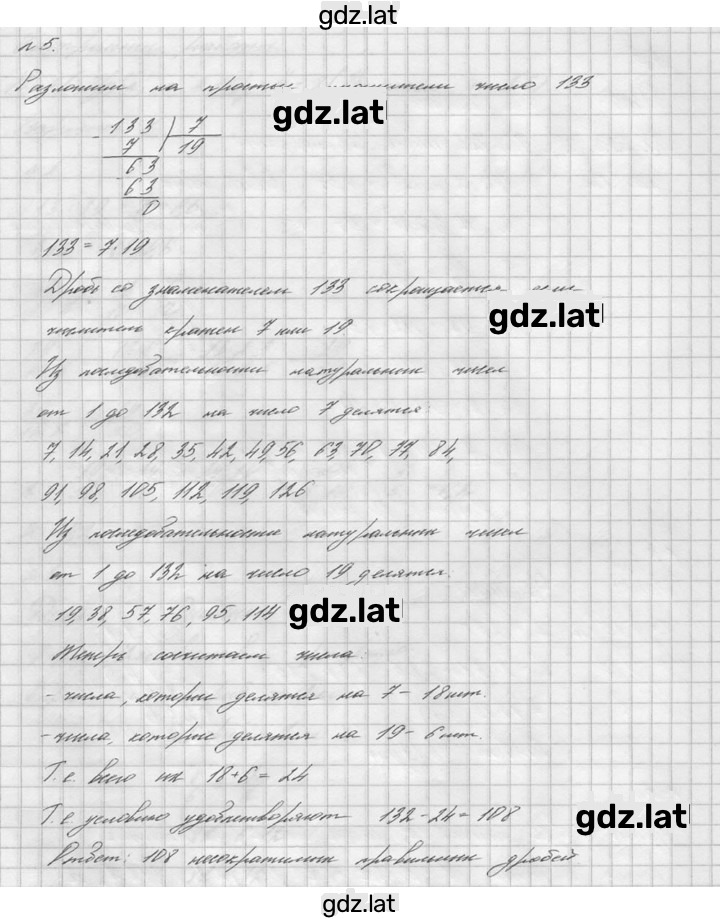 gdz.lat
№ 5.
Разложим на простые множители число 133
gdz.lat
133 | 7
7 19
63
63
0
133 = 7 · 19
Дробь со знаменателем 133 сокращается если
gdz.lat
числитель кратен 7 или 19
Из последовательности натуральных чисел
от 1 до 132 на число 7 делятся:
7, 14, 21, 28, 35, 42, 49, 56, 63, 70, 77, 84,
91, 98, 105, 112, 119, 126
Из последовательности натуральных чисел
от 1 до 132 на число 19 делятся:
19, 38, 57, 76, 95, 114
gdz.lat
Теперь сосчитаем числа:
- числа, которые делятся на 7 – 18 шт.
- числа, которые делятся на 19 – 6 шт.
Т.е. всего их 18 + 6 = 24
Т.е. условию удовлетворяют 132 - 24 = 108
gdz.lat
Ответ: 108 несократимых правильных дробей
gdz.lat